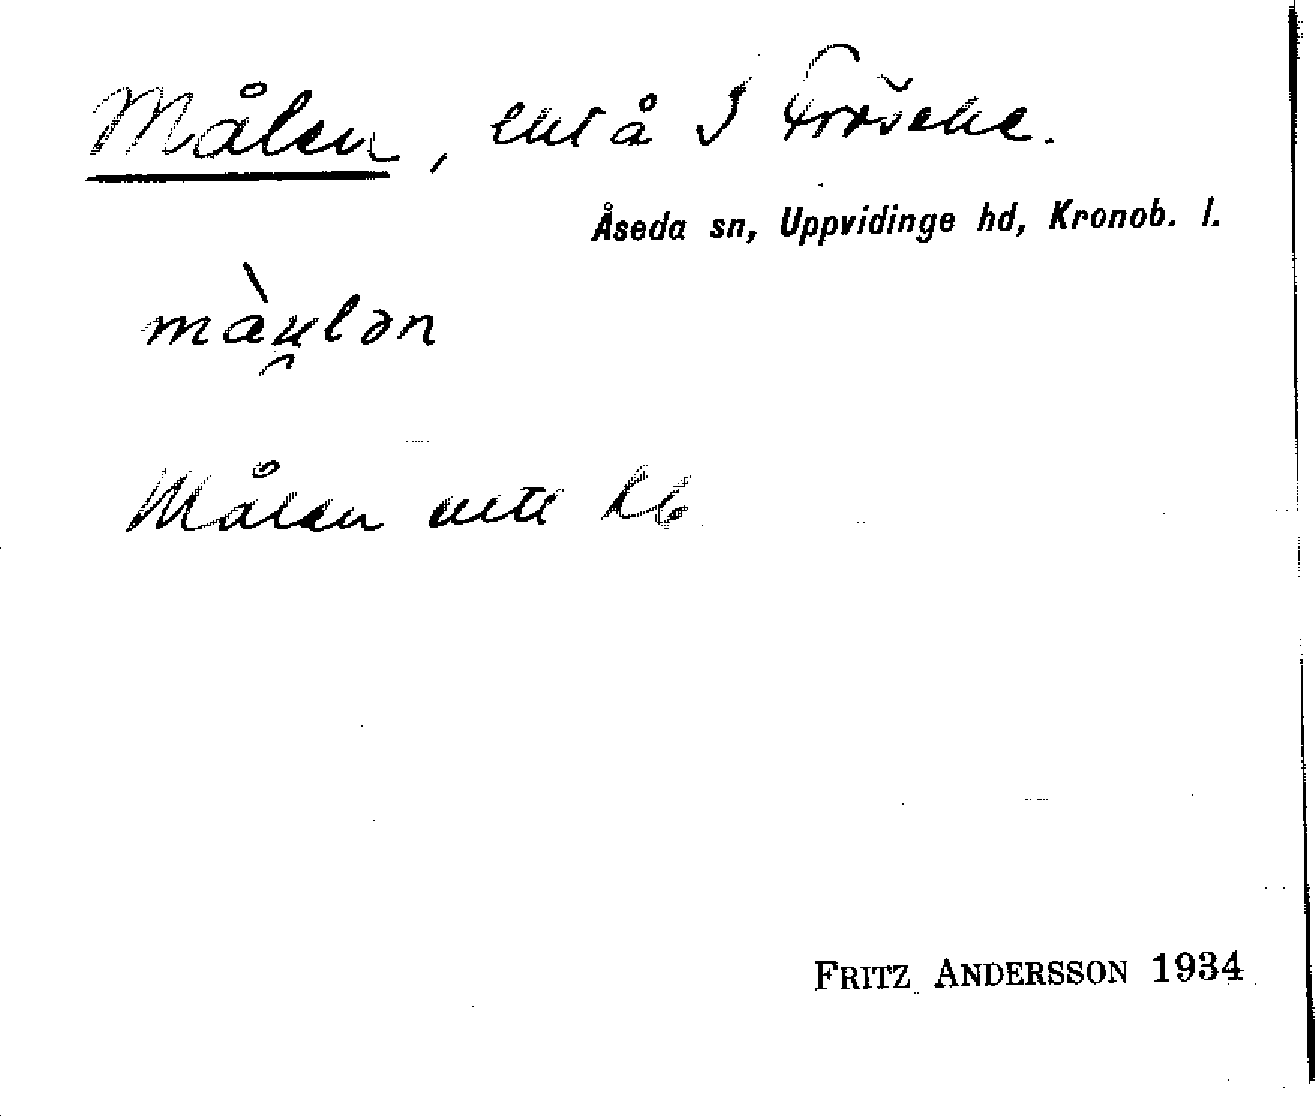 Målen, ens å I Fröseke.
Åseda sn, Uppvidinge hd, Kronob. l.
màu̯lən
Målen
FRITZ ANDERSSON 1934